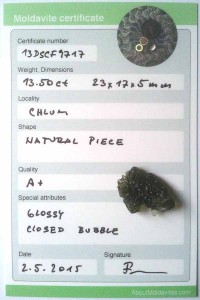 Moldavite certificate
Certificate number
13DSCF9717
Weight, Dimensions
13.50ct 23x17x5mm
Locality
CHLUM
Shape
NATURAL PIECE
Quality
A+
Special attributes
GLOSSY
CLOSED BUBBLE
Date
Signature
2.5.2015
AboutMoldavites.com